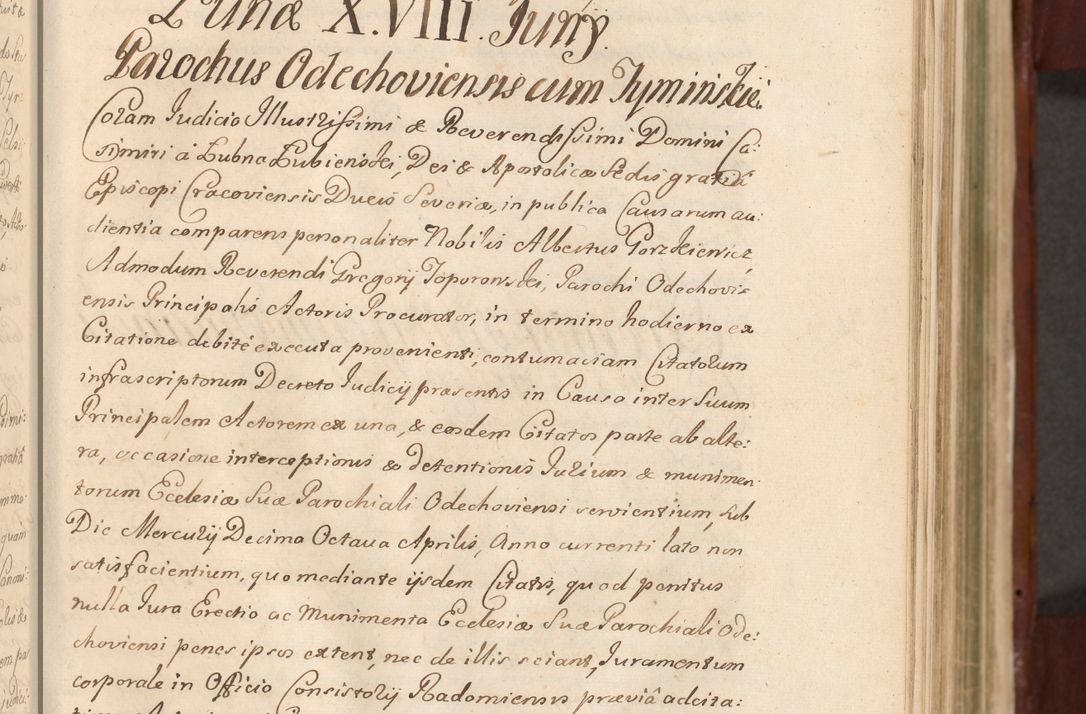 Lunæ X.VIII. Junij.
Parochus Odechoviensis cum Tyminskie.
Coram Judicio Illustrissimi & Reverendissimi Domini Ca:
simiri à Lubna Lubienski, Dei & Apostolicæ Sedis gratiâ
Episcopi Cracoviensis Ducis Severiæ, in publica Causarum au:
dientia comparens personaliter Nobilis Albertus Gorzkiewicz,
Admodum Reverendi Gregorij Toporowski, Parochi Odechovi:
ensis Principalis Actoris Procurator, in termino hodierno ex
Citatione debite executa provenienti, contumaciam Citatorum
infrascriptorum Decreto Judicij præsentis in Causa inter Suum
Principalem Actorem ex una, & eosdem Citatos parte ab alte:
ra, occasione interceptionis & detentionis Jurium & munimen
torum Ecclesiæ Suæ Parochiali Odechoviensi servientium, sub
Die Mercurij Decima Octava Aprilis, Anno currenti lato non
satisfacientium, quo mediante ijsdem Citatis, quod penitus
nulla Jura Erectio ac Munimenta Ecclesiæ Suæ Parochiali Ode:
choviensi penes ipsos extent, nec de illis sciant, Juramentum
corporale in Officio Consistorij Radomiensis præviâ adcita: